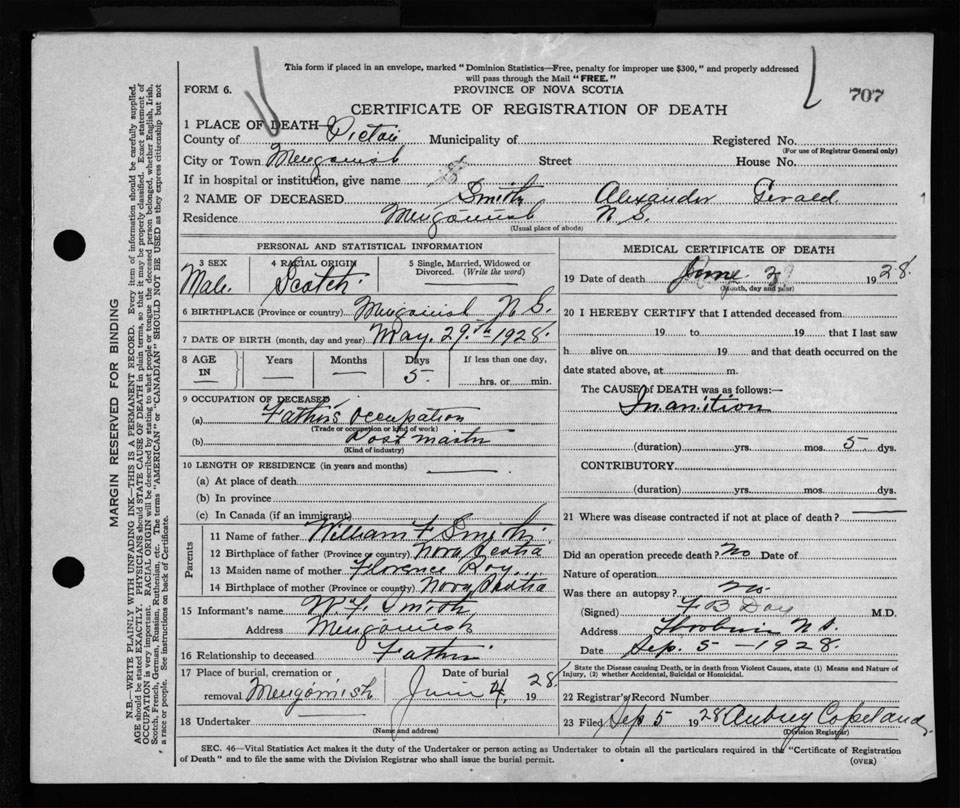 This form if placed in an envelope, marked "Dominion Statistics—Free, penalty for improper use $300," and properly addressed
will pass through the Mail "FREE."
FORM 6.
PROVINCE OF NOVA SCOTIA
707
CERTIFICATE OF REGISTRATION OF DEATH
1 PLACE OF DEATH—
County of Pictou Municipality of Registered No.
(For use of Registrar General only)
City or Town Merigomish Street House No.
If in hospital or institution, give name
2 NAME OF DECEASED Smith Alexander Gerald
Residence Merigomish N S.
(Usual place of abode)
PERSONAL AND STATISTICAL INFORMATION
3 SEX 4 RACIAL ORIGIN 5 Single, Married, Widowed or Divorced. (Write the word)
Male. Scotch
6 BIRTHPLACE (Province or country) Merigomish N S.
7 DATE OF BIRTH (month, day and year) May. 29th 1928.
8 AGE IN Years Months Days If less than one day,
5 hrs. or min.
9 OCCUPATION OF DECEASED
(a) Father's Occupation
(Trade or occupation or kind of work)
(b) Postmaster
(Kind of industry)
10 LENGTH OF RESIDENCE (in years and months)
(a) At place of death
(b) In province
(c) In Canada (if an immigrant)
Parents
11 Name of father William F. Smith
12 Birthplace of father (Province or country) Nova Scotia
13 Maiden name of mother Florence Roy
14 Birthplace of mother (Province or country) Nova Scotia
15 Informant's name W F Smith
Address Merigomish
16 Relationship to deceased Father
17 Place of burial, cremation or removal Merigomish
Date of burial June 4, 1928.
18 Undertaker
(Name and address)
MEDICAL CERTIFICATE OF DEATH
19 Date of death June 1928.
(Month, day and year)
20 I HEREBY CERTIFY that I attended deceased from
19 to 19 that I last saw
h alive on 19 and that death occurred on the
date stated above, at m.
The CAUSE of DEATH was as follows:—
Inanition
(duration) yrs. mos. 5 dys.
CONTRIBUTORY
(duration) yrs. mos. dys.
21 Where was disease contracted if not at place of death?
Did an operation precede death? No Date of
Nature of operation
Was there an autopsy? No.
(Signed) F B Day M.D.
Address Thorburn N S.
Date Sep. 5 - 1928.
State the Disease causing Death, or in death from Violent Causes, state (1) Means and Nature of
Injury, (2) whether Accidental, Suicidal or Homicidal.
22 Registrar's Record Number
23 Filed Sep 5 1928 Aubrey Copeland
(Division Registrar)
SEC. 46—Vital Statistics Act makes it the duty of the Undertaker or person acting as Undertaker to obtain all the particulars required in the "Certificate of Registration
of Death" and to file the same with the Division Registrar who shall issue the burial permit.
(OVER)
MARGIN RESERVED FOR BINDING
N.B.—WRITE PLAINLY WITH UNFADING INK—THIS IS A PERMANENT RECORD. Every item of information should be carefully supplied.
AGE should be stated EXACTLY. PHYSICIANS should STATE CAUSE OF DEATH in plain terms, so that it may be properly classified. Exact statement of
OCCUPATION is very important. RACIAL ORIGIN will be described by stating to what people or tongue the deceased person belonged, whether English, Irish,
Scotch, French, German, Russian, Ruthenian, etc. The terms "AMERICAN" or "CANADIAN" SHOULD NOT BE USED as they express citizenship but not
a race or people. See instructions on back of Certificate.